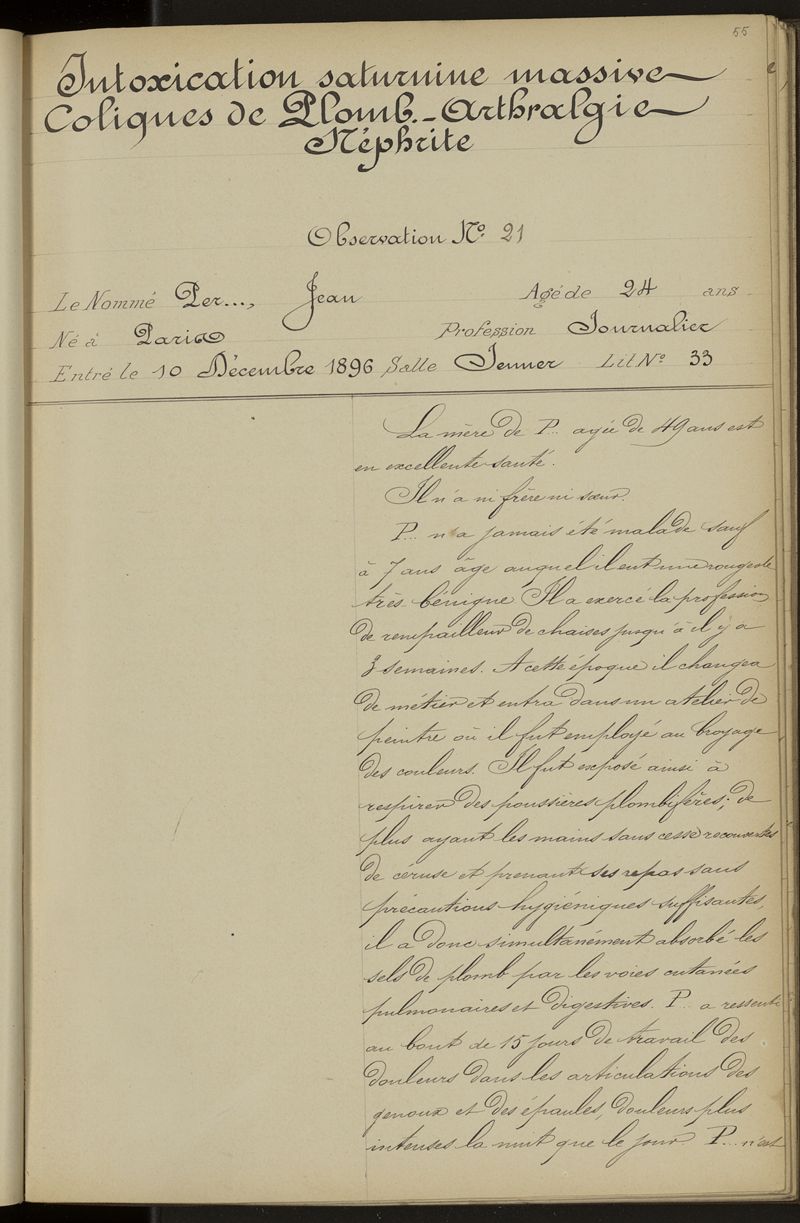 55
Intoxication saturnine massive
Coliques de Plomb._ Arthralgie
Néphrite
Observation No. 21
Le Nommé Per..., Jean Agé de 24 ans
Né à Paris Profession Journalier
Entré le 10 Décembre 1896 Salle Jenner Lit No 33
La mère de P... agée de 49 ans est
en excellente santé.
Il n'a ni frère ni sœur.
P... n'a jamais été malade sauf
à 7 ans âge auquel il eut une rougeole
très bénigne Il a exercé la profession
de rempailleur de chaises jusqu'à il y a
3 semaines. A cette époque il changea
de métier et entra dans un atelier de
peintre où il fut employé au broyage
des couleurs. Il fut exposé ainsi à
respirer des poussières plombifères; de
plus ayant les mains sans cesse recouvertes
de céruse et prenant ses repas sans
précautions hygiéniques suffisantes,
il a donc simultanément absorbé les
sels de plomb par les voies cutanées
pulmonaires et digestives. P... a ressenti
au bout de 15 jours de travail des
douleurs dans les articulations des
genoux et des épaules, douleurs plus
intenses la nuit que le jour. P... n'est